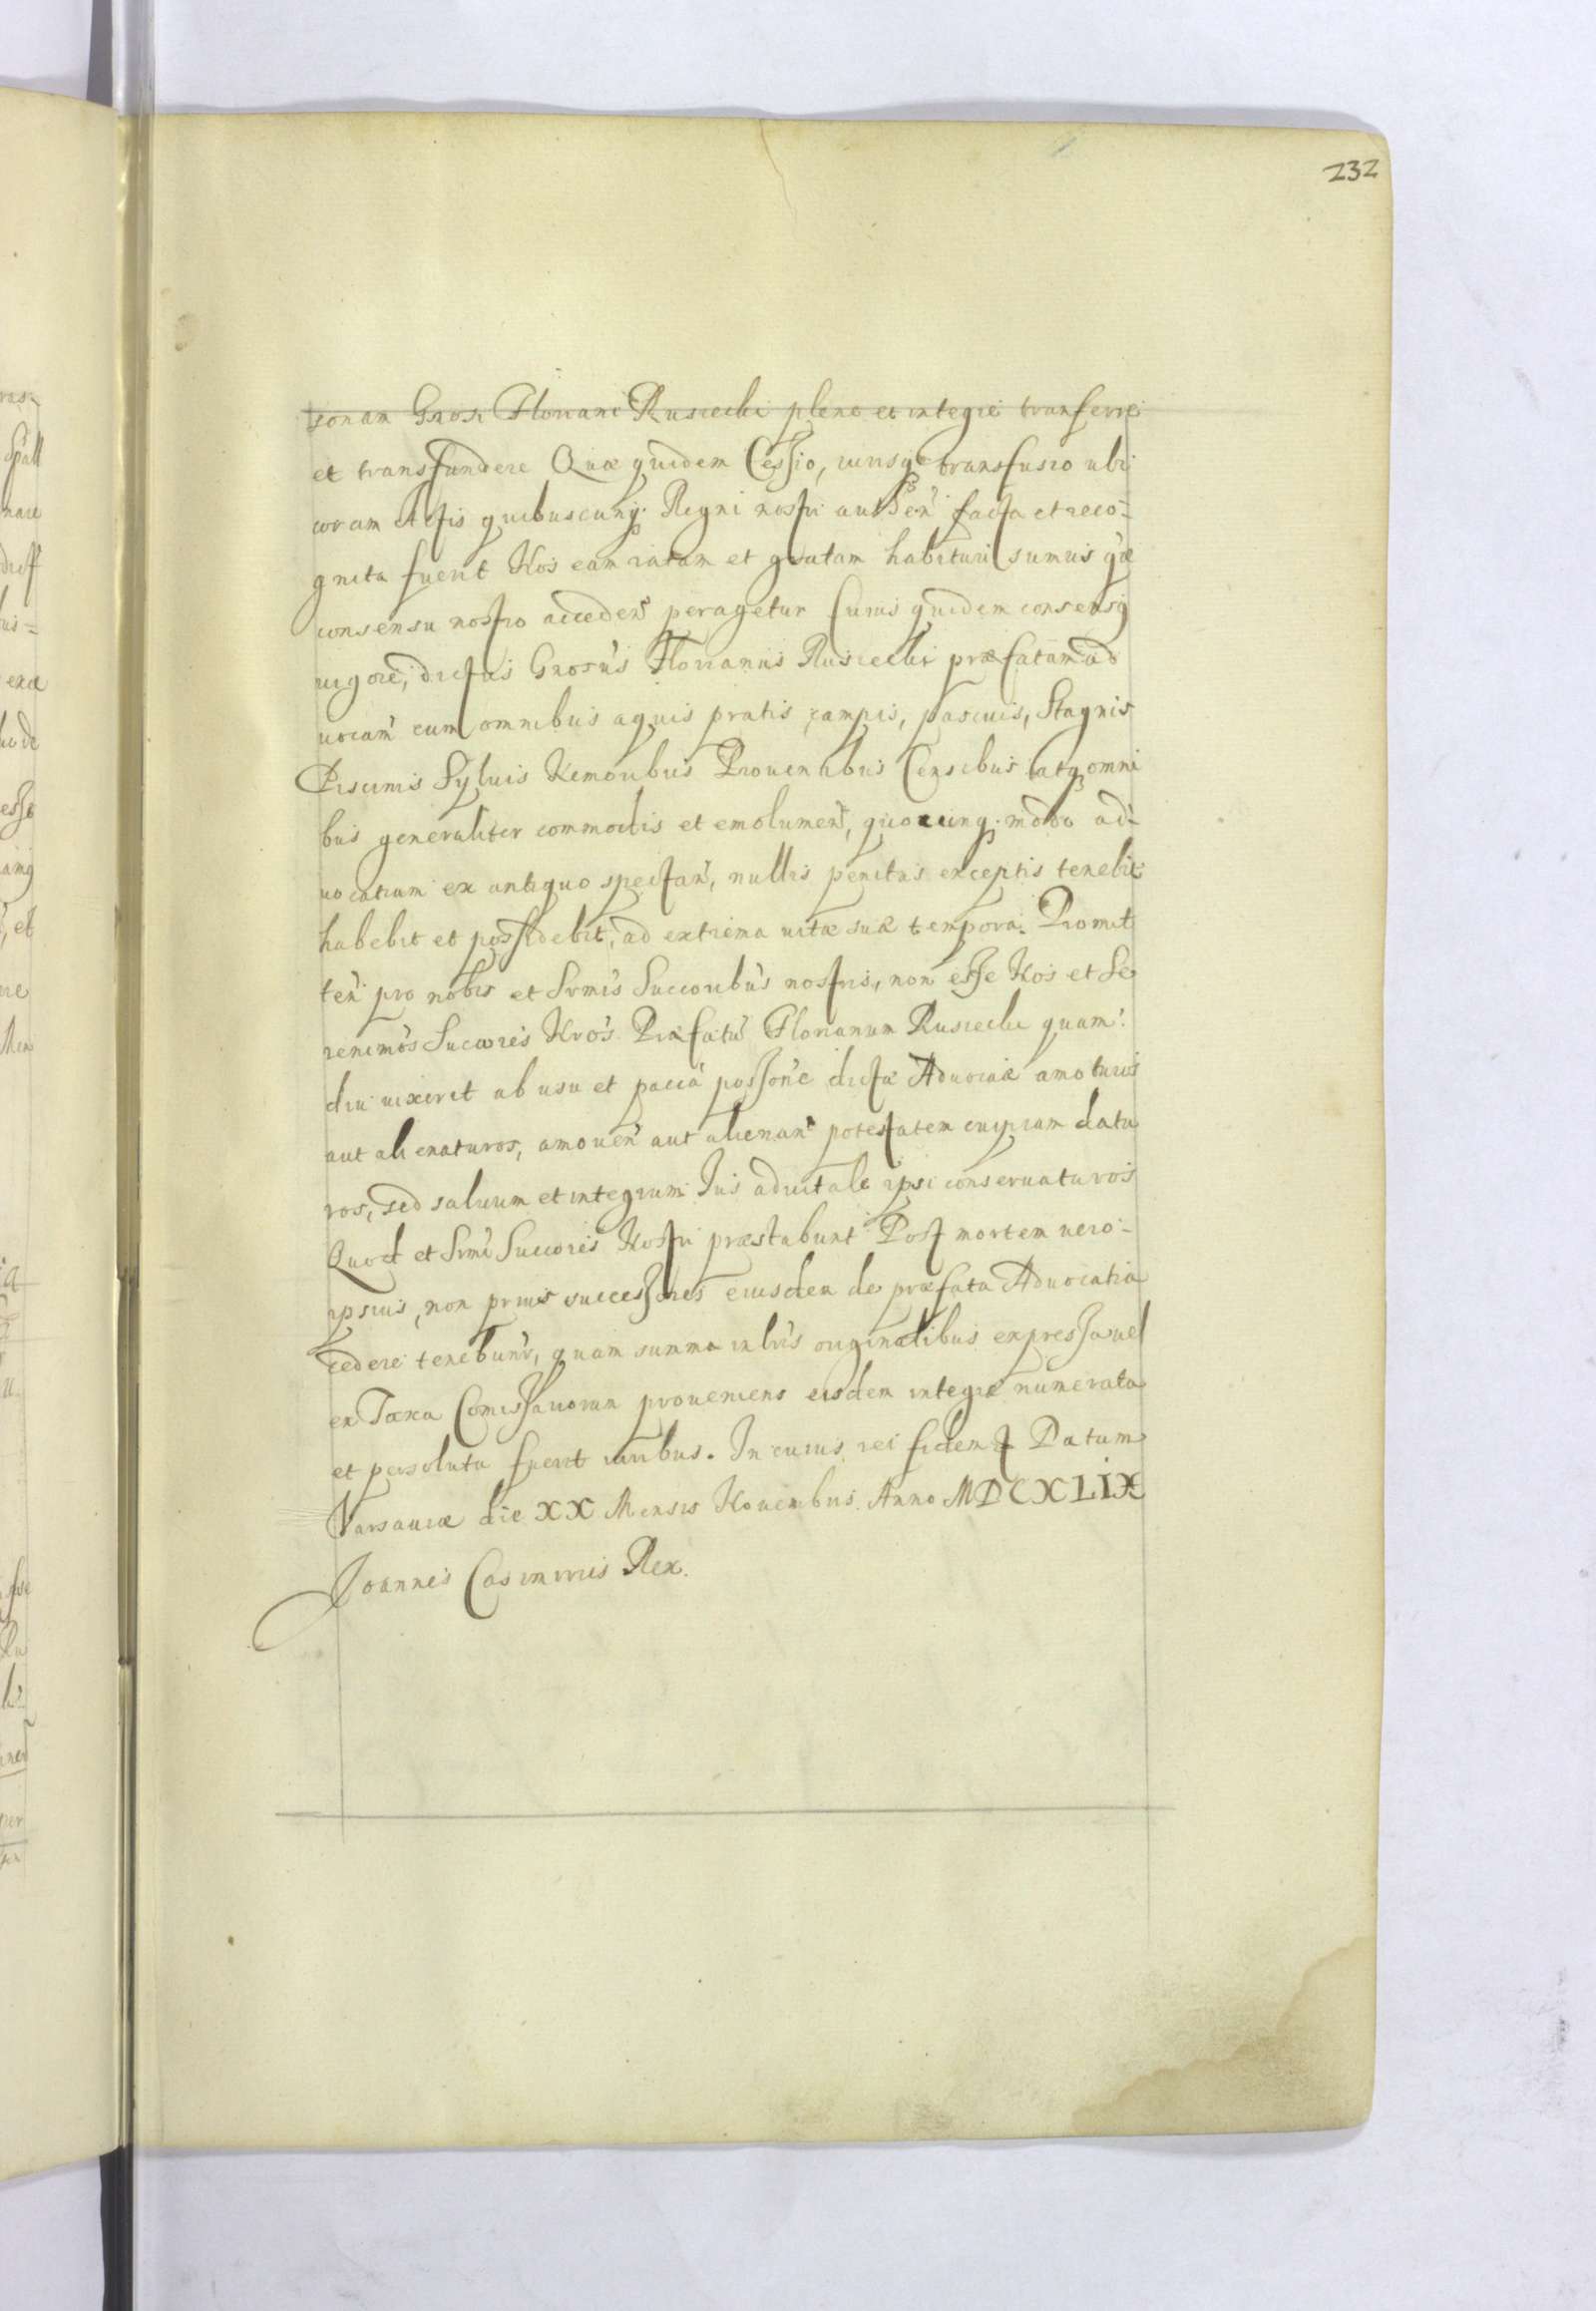 232
sonam Gnosi Floriani Rusiecki plene et integre transferre
et transfundere Quæ quidem Cessio, iurisq transfusio ubi
coram Actis quibuscunq Regni nostri authen facta et reco-
gnita fuerit Nos eam ratam et gratam habituri sumus quæ
consensu nostro acceden peragetur Cuius quidem consensq
uigore, dictus Gnosus Florianus Rusiecki præfatam ad
uocam cum omnibus aquis pratis, campis, pascuis, Stagnis
Piscinis Syluis Nemoribus Prouentibus Censibus atq omni
bus generaliter commodis et emolumen, quocunq modo ad-
uocatiam ex antiquo spectan, nullis penitus exceptis tenebit
habebit et possidebit, ad extrema uitæ suæ tempora. Promit
ten pro nobis et Srmis Succoribus nostris, non esse Nos et Se
renimos Succores Nros Præfatu Florianum Rusiecki quam
diu uixerit ab usu et paca possone dictæ Aduocæ amoturos
aut alienaturos, amouen aut alienan potestatem cuipiam datu
ros, sed saluum et integrum Ius aduitale ipsi conseruaturos
Quod et Srmi Succores Nostri præstabunt Post mortem uero-
ipsius, non prius successores eiusdem de præfata Aduocatia
cedere tenebunr, quam summa in lris originalibus expressa uel
ex Taxa Comissariorum proueniens eisdem integre numerata
et persoluta fuerit. In cuius rei fidem Datum
Varsauiæ die XX Mensis Nouembris Anno MDCXLIX
Joannes Casimirus Rex.